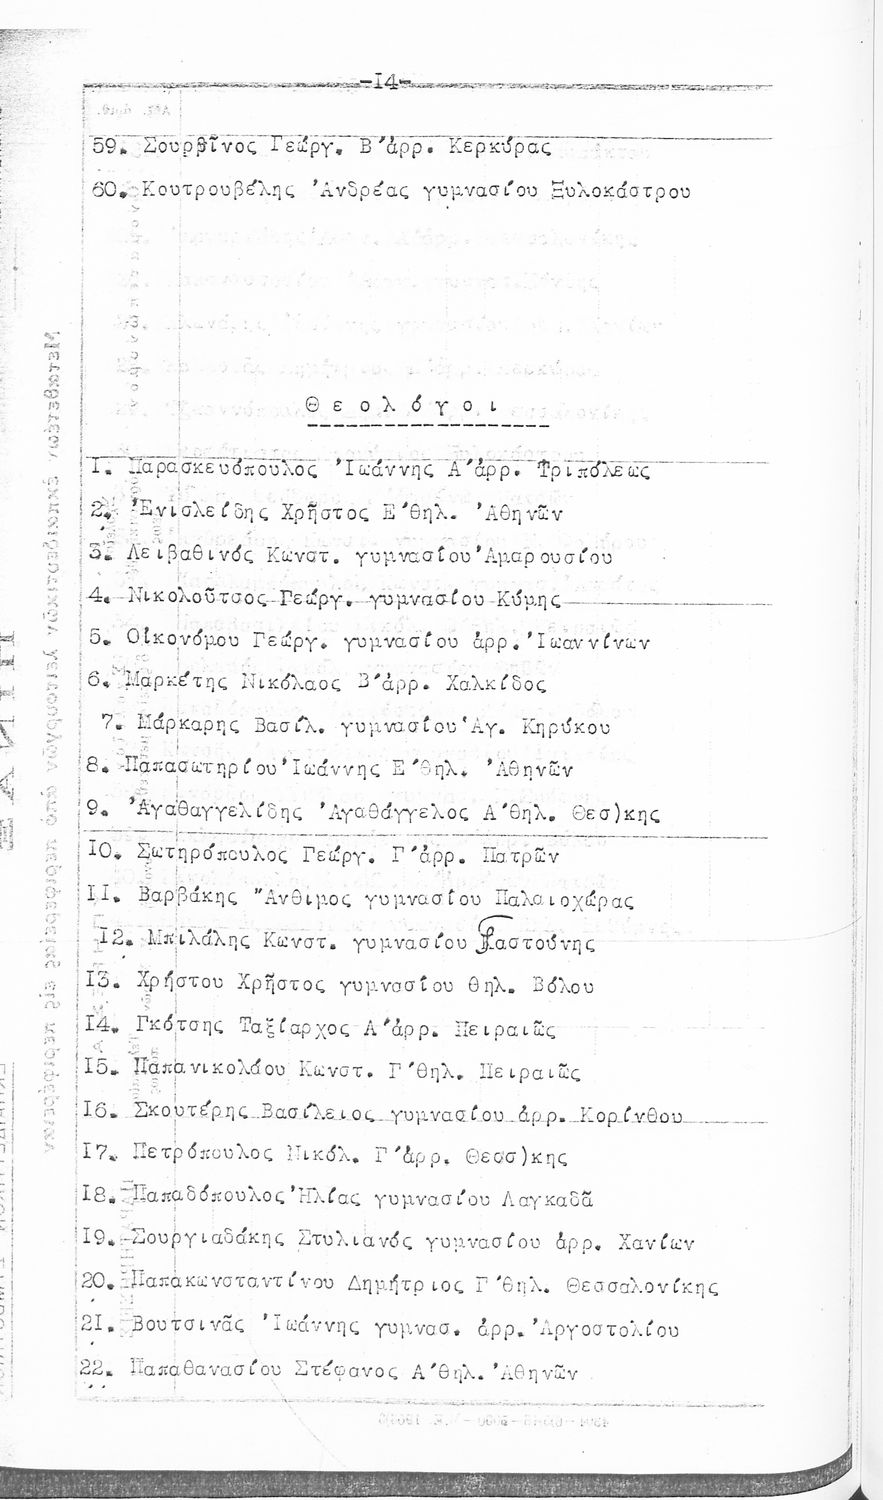 -14-
59. Σουρβῖνος Γεώργ. Β΄ἀρρ. Κερκύρας
60. Κουτρουβέλης Ἀνδρέας γυμνασίου Ξυλοκάστρου
Θεολόγοι
1. Παρασκευόπουλος Ἰωάννης Α΄ἀρρ. Τριπόλεως
2. Ἐνισλείδης Χρῆστος Ε΄θηλ. Ἀθηνῶν
3. Λειβαθινός Κωνστ. γυμνασίου Ἀμαρουσίου
4. Νικολοῦτσος Γεώργ. γυμνασίου Κύμης
5. Οἰκονόμου Γεώργ. γυμνασίου ἀρρ. Ἰωαννίνων
6. Μαρκέτης Νικόλαος Β΄ἀρρ. Χαλκίδος
7. Μάρκαρης Βασίλ. γυμνασίου Ἁγ. Κηρύκου
8. Παπασωτηρίου Ἰωάννης Ε΄θηλ. Ἀθηνῶν
9. Ἀγαθαγγελίδης Ἀγαθάγγελος Α΄θηλ. Θεσ)κης
10. Σωτηρόπουλος Γεώργ. Γ΄ἀρρ. Πατρῶν
11. Βαρβάκης Ἄνθιμος γυμνασίου Παλαιοχώρας
12. Μπιλάλης Κωνστ. γυμνασίου Γαστούνης
13. Χρήστου Χρῆστος γυμνασίου θηλ. Βόλου
14. Γκότσης Ταξίαρχος Α΄ἀρρ. Πειραιῶς
15. Παπανικολάου Κωνστ. Γ΄θηλ. Πειραιῶς
16. Σκουτέρης Βασίλειος γυμνασίου ἀρρ. Κορίνθου
17. Πετρόπουλος Νικόλ. Γ΄ἀρρ. Θεσσ)κης
18. Παπαδόπουλος Ἠλίας γυμνασίου Λαγκαδᾶ
19. Σουργιαδάκης Στυλιανός γυμνασίου ἀρρ. Χανίων
20. Παπακωνσταντίνου Δημήτριος Γ΄θηλ. Θεσσαλονίκης
21. Βουτσινᾶς Ἰωάννης γυμνασ. ἀρρ. Ἀργοστολίου
22. Παπαθανασίου Στέφανος Α΄θηλ. Ἀθηνῶν